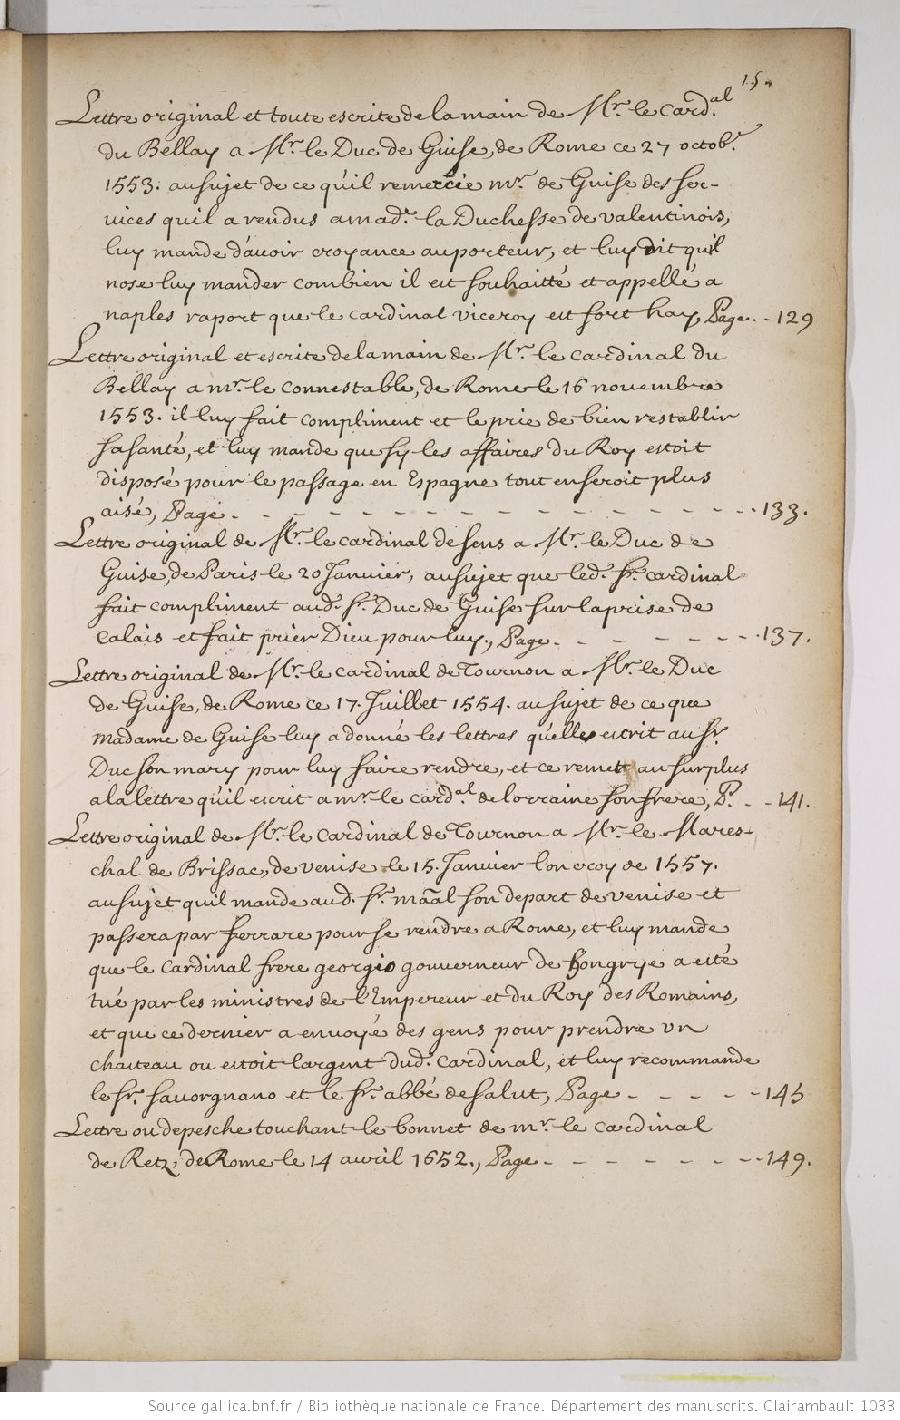 15.
Lettre original et toute escrite de la main de Mr. le Card.al
du Bellay a Mr. le Duc de Guise, de Rome ce 27 octob.e
1553. au sujet de ce qu'il remercie mr. de Guise des ser-
vices quil a rendus a mad.e la Duchesse de valentinois,
luy mande d'avoir croyance au porteur, et luy dit qu'il
nose luy mander combien il est souhaitté et appellé a
naples raport que le cardinal viceroy est fort hay, Page - - 129
Lettre original et escrite de la main de Mr. le cardinal du
Bellay a mr. le connestable, de Rome le 16 novembre
1553. il luy fait compliment et le prie de bien restablir
sa santé, et luy mande que sy les affaires du Roy estoit
disposé pour le passage en Espagne tout en seroit plus
aisé, Page - - - - - - - - - - - - - - - 133.
Lettre original de Mr. le cardinal de sens a Mr. le Duc de
Guise, de Paris le 20 Janvier, au sujet que led. sr. cardinal
fait compliment aud. sr. Duc de Guise sur la prise de
calais et fait prier Dieu pour luy, Page - - - - - - - 137.
Lettre original de Mr. le cardinal de Tournon a Mr. le Duc
de Guise, de Rome ce 17. Juillet 1554. au sujet de ce que
madame de Guise luy a donné les lettres qu'elle escrit au sr.
Duc son mary pour luy faire rendre, et ce remett au surplus
a la lettre qu'il escrit a mr. le card.al de lorraine son frere, P. - - 141.
Lettre original de Mr. le Cardinal de Tournon a Mr. le Mares-
chal de Brissac, de venise le 15. Janvier 1557.
au sujet quil mande aud. sr. maal son depart de venise et
passera par ferrare pour se rendre a Rome, et luy mande
que le cardinal frere georgio gouverneur de hongrye a esté
tué par les ministres de l'Empereur et du Roy des Romains,
et que ce dernier a envoyé des gens pour prendre un
chasteau ou estoit l'argent dud. cardinal, et luy recommande
le sr. savorgnano et le sr. abbé de salut, Page - - - - - 145
Lettre ou depesche touchant le bonnet de mr. le cardinal
de Retz, de Rome le 14 avril 1652., Page - - - - - - - 149.
Source gallica.bnf.fr / Bibliothèque nationale de France. Département des manuscrits. Clairambault 1033